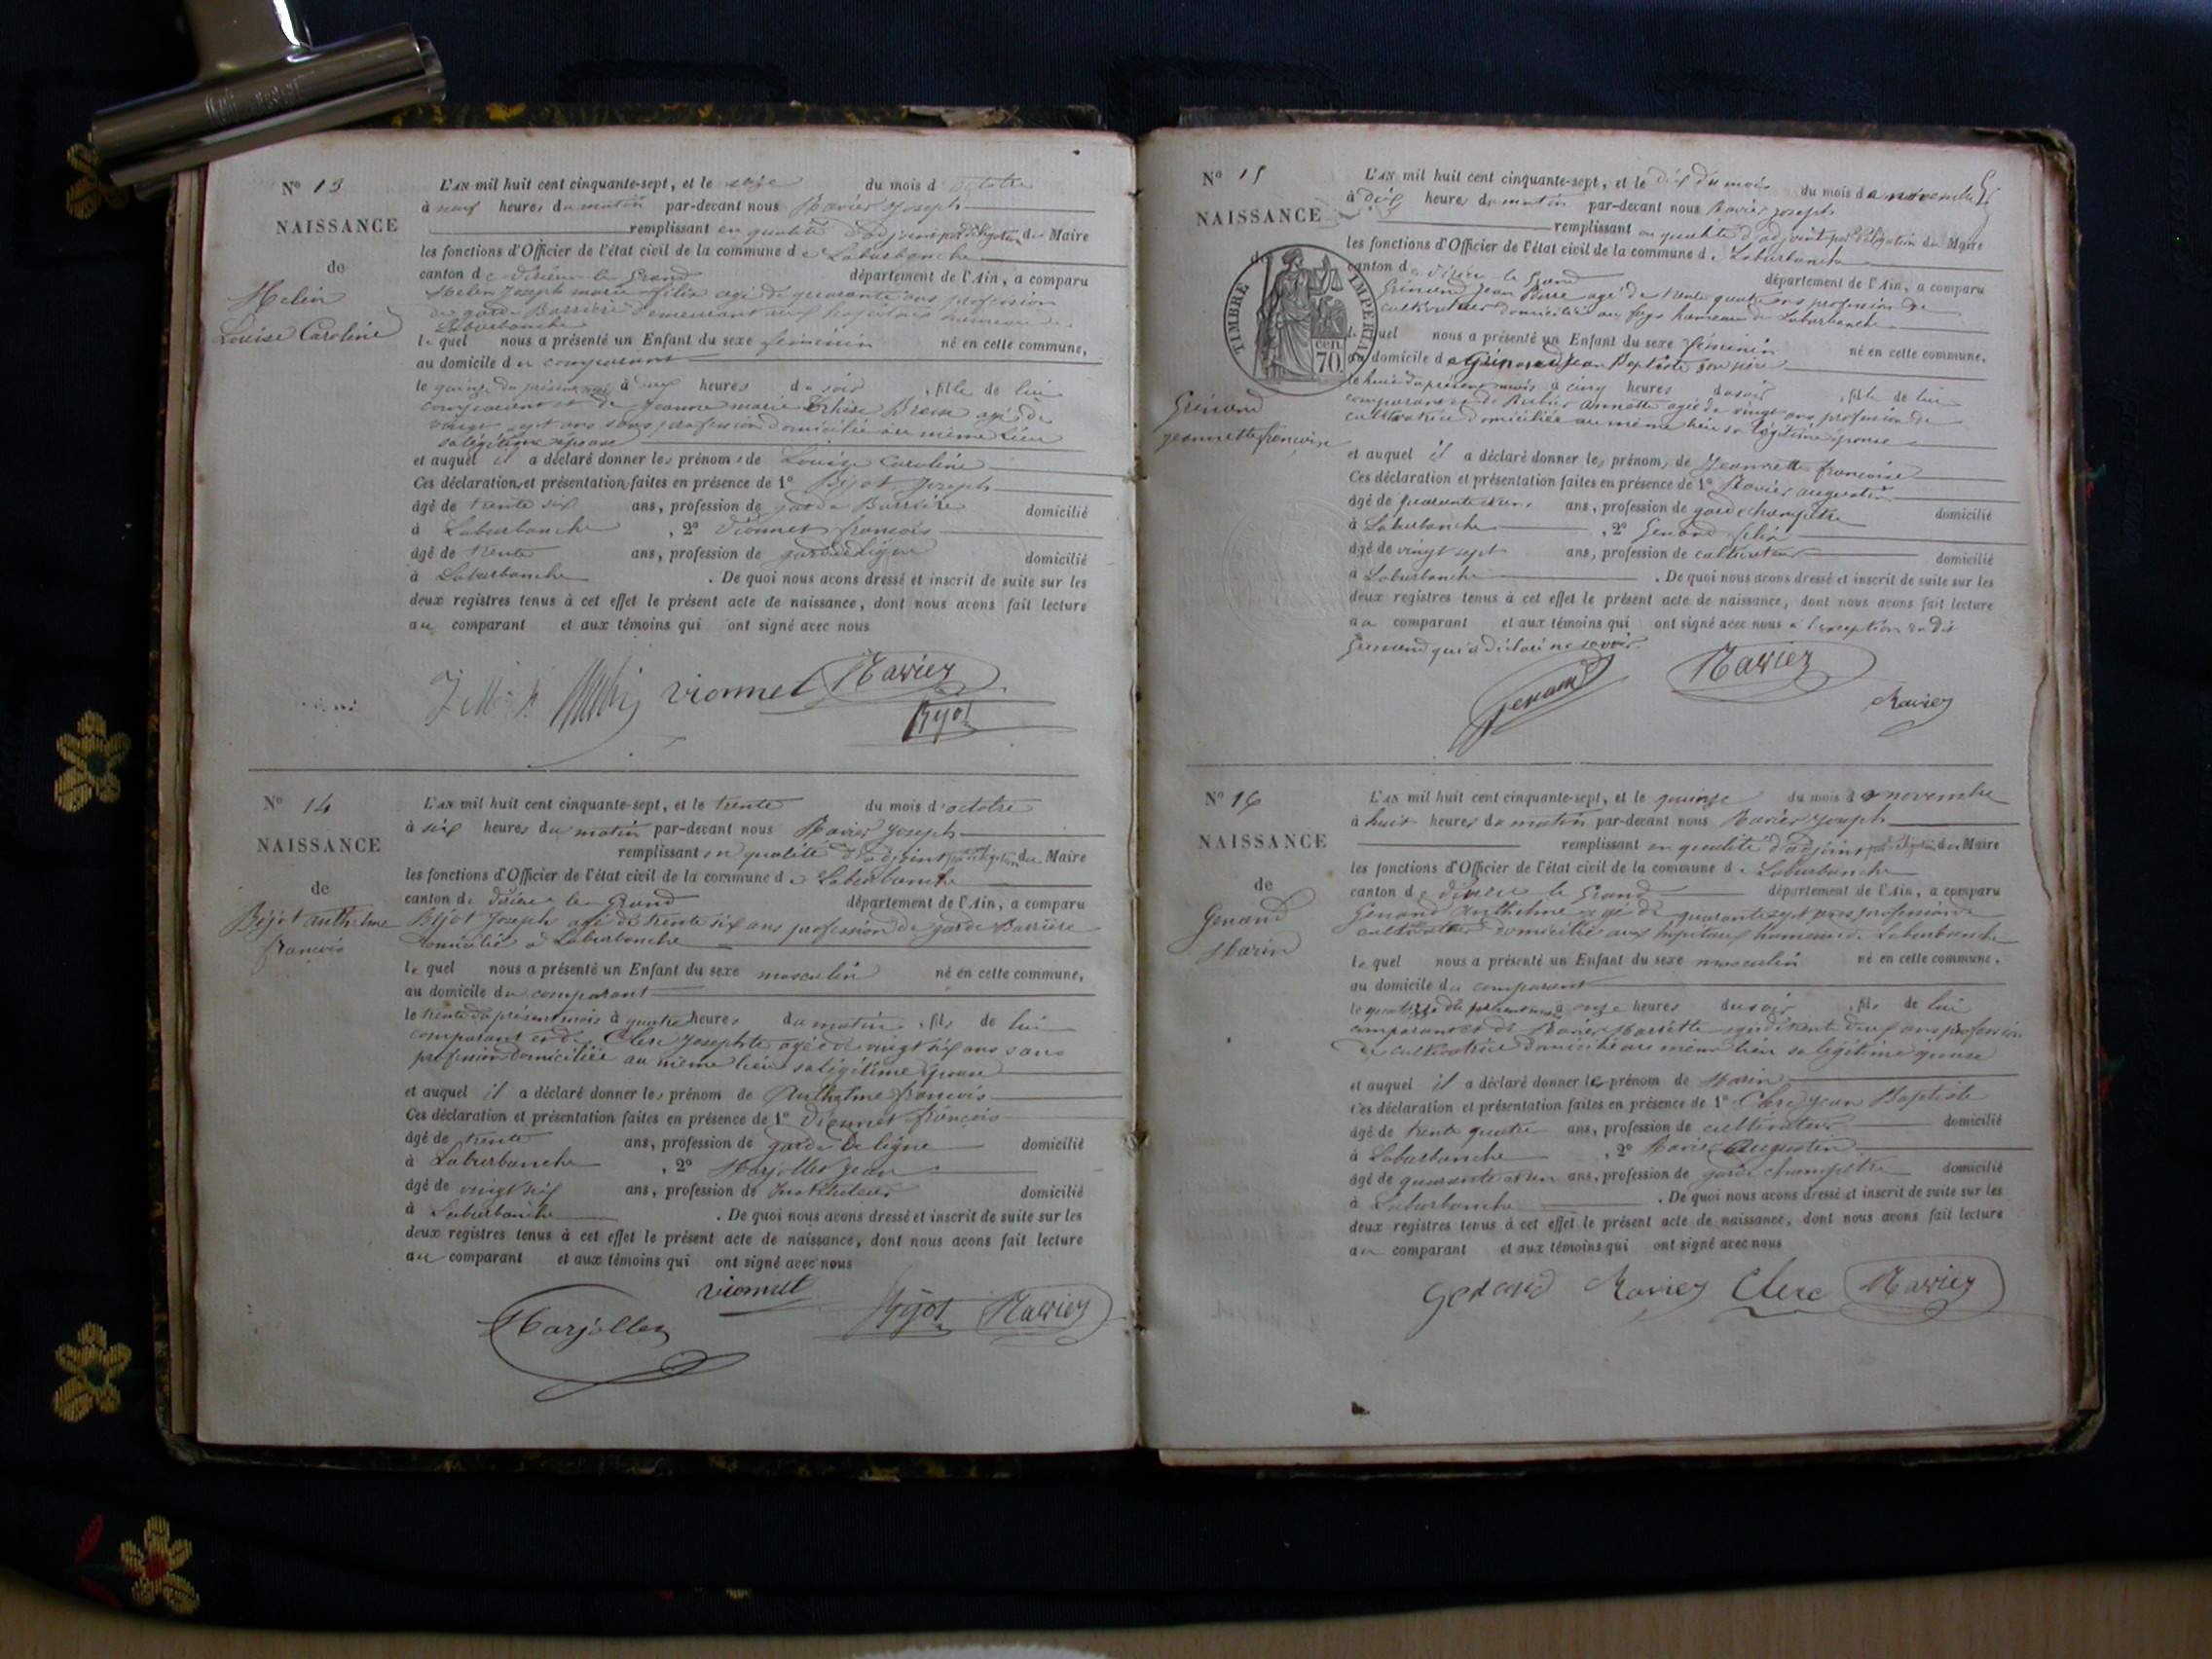 N° 13
NAISSANCE
de
Helin
Louise Caroline
L'AN mil huit cent cinquante-sept, et le seize du mois d octobre
à neuf heures du matin par-devant nous Ravier Joseph
remplissant en qualité d'adjoint par délégation du Maire
les fonctions d'Officier de l'état civil de la commune de Laburbanche
canton de virieu le Grand département de l'Ain, a comparu
Helin Joseph marie félix agé de quarante ans profession
de garde Barrière demeurant aux hopitaux hameau de
Laburbanche
le quel nous a présenté un Enfant du sexe féminin né en cette commune,
au domicile du comparant
le quinze du présent mois à heures du soir , fille de lui
comparant et de Jeanne marie thérèse agé de
vingt sept ans sans profession domiciliée au même lieu
sa légitime épouse
et auquel il a déclaré donner les prénoms de Louise Caroline
Ces déclaration et présentation faites en présence de 1° Bijot Joseph
âgé de trente six ans, profession de garde Barrière domicilié
à Laburbanche , 2° Vionnet françois
âgé de trente ans, profession de garde ligne domicilié
à Laburbanche . De quoi nous avons dressé et inscrit de suite sur les
deux registres tenus à cet effet le présent acte de naissance, dont nous avons fait lecture
au comparant et aux témoins qui ont signé avec nous
vionnet Ravier
Bijot
N° 14
NAISSANCE
de
Bijot anthelme
françois
L'AN mil huit cent cinquante-sept, et le trente du mois d'octobre
à six heures du matin par-devant nous Ravier Joseph
remplissant en qualité d'adjoint par délégation du Maire
les fonctions d'Officier de l'état civil de la commune de Laburbanche
canton de virieu le Grand département de l'Ain, a comparu
Bijot Joseph agé de trente six ans profession de garde Barrière
domicilié à Laburbanche
le quel nous a présenté un Enfant du sexe masculin né en cette commune,
au domicile du comparant
le trente du présent mois à quatre heures du matin , fils de lui
comparant et de Clerc Josephte agée de vingt six ans sans
profession domiciliée au même lieu sa légitime épouse
et auquel il a déclaré donner les prénom de Anthelme françois
Ces déclaration et présentation faites en présence de 1° Vionnet françois
âgé de trente ans, profession de garde la ligne domicilié
à Laburbanche , 2° Marjollet Jean
âgé de vingt six ans, profession de Instituteur domicilié
à Laburbanche . De quoi nous avons dressé et inscrit de suite sur les
deux registres tenus à cet effet le présent acte de naissance, dont nous avons fait lecture
au comparant et aux témoins qui ont signé avec nous
vionnet
Marjollet Bijot Ravier
N° 15
NAISSANCE
de
TIMBRE IMPERIAL
70 cen.
Grinand
jeannette françoise
L'AN mil huit cent cinquante-sept, et le dix du mois du mois de novembre
à dix heures du matin par-devant nous Ravier Joseph
remplissant en qualité d'adjoint par délégation du Maire
les fonctions d'Officier de l'état civil de la commune de Laburbanche
canton de virieu le Grand département de l'Ain, a comparu
Grinand Jean Pierre agé de trente quatre ans profession de
cultivateur domicilié au hameau de Laburbanche
le quel nous a présenté un Enfant du sexe féminin né en cette commune,
au domicile de Grinand Jean Baptiste son père
le huit du présent mois à cinq heures du soir , fille de lui
comparant et de Annette agée de vingt ans profession de
cultivatrice domiciliée au même lieu sa légitime épouse
et auquel il a déclaré donner les prénoms de Jeannette françoise
Ces déclaration et présentation faites en présence de 1° Ravier augustin
âgé de quarante et un ans, profession de garde champêtre domicilié
à Laburbanche , 2° Genand félix
âgé de vingt sept ans, profession de cultivateur domicilié
à Laburbanche . De quoi nous avons dressé et inscrit de suite sur les
deux registres tenus à cet effet le présent acte de naissance, dont nous avons fait lecture
au comparant et aux témoins qui ont signé avec nous à l'exception du dit
Grinand qui a déclaré ne savoir.
Genand Ravier
Ravier
N° 16
NAISSANCE
de
Genand
Marin
L'AN mil huit cent cinquante-sept, et le quinze du mois de novembre
à huit heures du matin par-devant nous Ravier Joseph
remplissant en qualité d'adjoint par délégation du Maire
les fonctions d'Officier de l'état civil de la commune de Laburbanche
canton de virieu le Grand département de l'Ain, a comparu
Genand Anthelme agé de quarante sept ans profession de
cultivateur domicilié aux hopitaux hameau de Laburbanche
le quel nous a présenté un Enfant du sexe masculin né en cette commune,
au domicile du comparant
le quatorze du présent mois à onze heures du soir , fils de lui
comparant et de Ravier Mariette agée de trente deux ans profession
de cultivatrice domiciliée au même lieu sa légitime épouse
et auquel il a déclaré donner le prénom de Marin
Ces déclaration et présentation faites en présence de 1° Clerc Jean Baptiste
âgé de trente quatre ans, profession de cultivateur domicilié
à Laburbanche , 2° Ravier Augustin
âgé de quarante et un ans, profession de garde champêtre domicilié
à Laburbanche . De quoi nous avons dressé et inscrit de suite sur les
deux registres tenus à cet effet le présent acte de naissance, dont nous avons fait lecture
au comparant et aux témoins qui ont signé avec nous
Genand Ravier Clerc Ravier